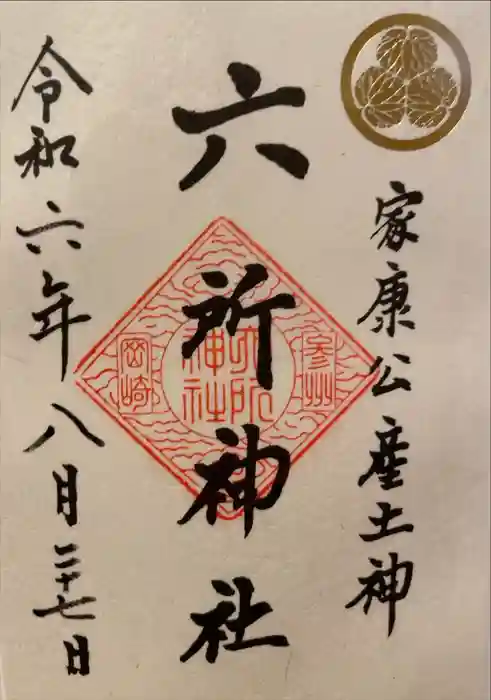 家康公産土神
六所神社
参州
六所神社
岡崎
令和六年八月二十七日